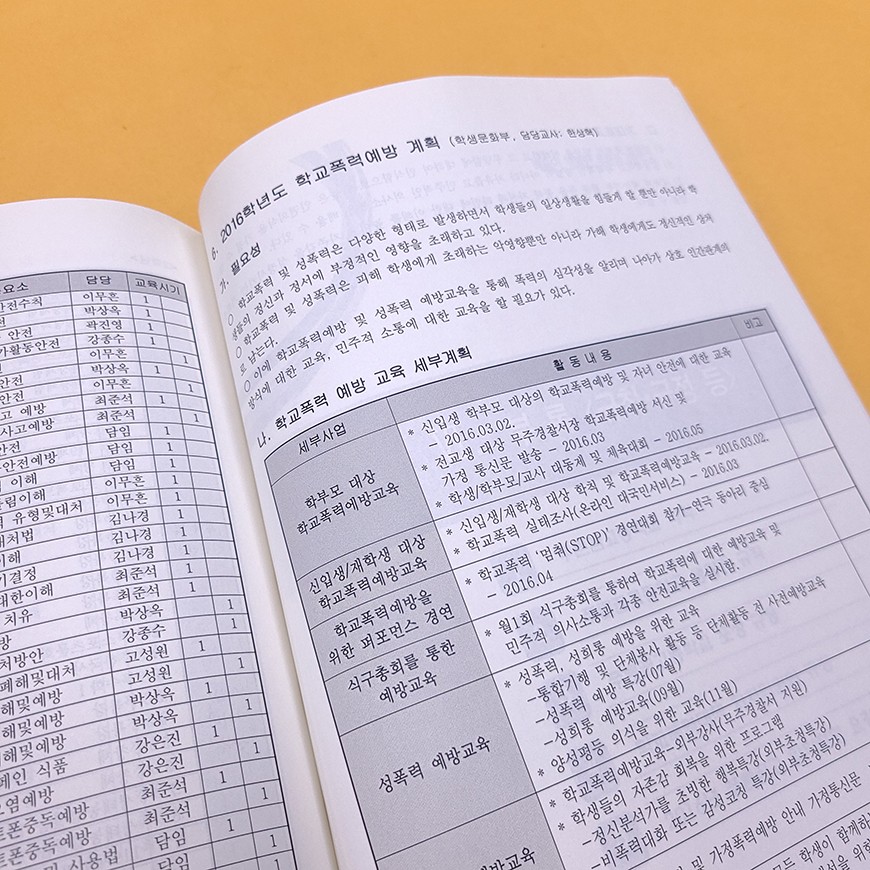 요소 담당 교육시기
안전수칙 이무흔 1
전 박상옥 1
안전 곽진영 1
가활동안전 강종수 1
이무흔 1
안전 박상옥 1
안전 이무흔 1
고 예방 최준석 1
사고예방 최준석 1
담임 1
안전예방 담임 1
이해 담임 1
들림이해 이무흔 1
유형및대처 이무흔 1
대처법 김나경 1
이해 김나경 1
기결정 김나경 1
대한이해 최준석 1
치유 최준석 1
방 박상옥 1
처방안 강종수 1
폐해및대처 고성원 1
해및예방 고성원 1
해및예방 박상옥 1
해및예방 박상옥 1
페인 식품 강은진 1
염예방 강은진 1
트폰중독예방 최준석 1
트폰중독예방 최준석 1
사용법 담임 1
담임 1
6. 2016학년도 학교폭력예방 계획 (학생문화부, 담당교사: 한상혁)
가. 필요성
○ 학교폭력 및 성폭력은 다양한 형태로 발생하면서 학생들의 일상생활을 힘들게 할 뿐만 아니라 학
생들의 정신과 정서에 부정적인 영향을 초래하고 있다.
○ 학교폭력 및 성폭력은 피해 학생에게 초래하는 악영향뿐만 아니라 가해 학생에게도 정신적인 상처
로 남는다.
○ 이에 학교폭력예방 및 성폭력 예방교육을 통해 폭력의 심각성을 알리며 나아가 상호 인간관계의
방식에 대한 교육, 민주적 소통에 대한 교육을 할 필요가 있다.
나. 학교폭력 예방 교육 세부계획
세부사업 활 동 내 용 비고
학부모 대상
학교폭력예방교육
* 신입생 학부모 대상의 학교폭력예방 및 자녀 안전에 대한 교육
- 2016.03.02.
* 전교생 대상 무주경찰서장 학교폭력예방 서신 및
가정 통신문 발송 - 2016.03
* 학생/학부모/교사 대동제 및 체육대회 - 2016.05
신입생/재학생 대상
학교폭력예방교육
* 신입생/재학생 대상 학칙 및 학교폭력예방교육 - 2016.03.02.
* 학교폭력 실태조사(온라인 대국민서비스) - 2016.03
학교폭력예방을
위한 퍼포먼스 경연
* 학교폭력 '멈춰(STOP)' 경연대회 참가-연극 동아리 중심
- 2016.04
식구총회를 통한
예방교육
* 월1회 식구총회를 통하여 학교폭력에 대한 예방교육 및
민주적 의사소통과 각종 안전교육을 실시함.
성폭력 예방교육
* 성폭력, 성희롱 예방을 위한 교육
-통합기행 및 단체봉사 활동 등 단체활동 전 사전예방교육
-성폭력 예방 특강(07월)
-성희롱 예방교육(09월)
* 양성평등 의식을 위한 교육(11월)
예방교육
* 학교폭력예방교육-외부강사(무주경찰서 지원)
* 학생들의 자존감 회복을 위한 프로그램
-정신분석가를 초빙한 행복특강(외부초청특강)
-비폭력대화 또는 감성코칭 특강(외부초청특강)
및 가정폭력예방 안내 가정통신문
모든 학생이 함께하